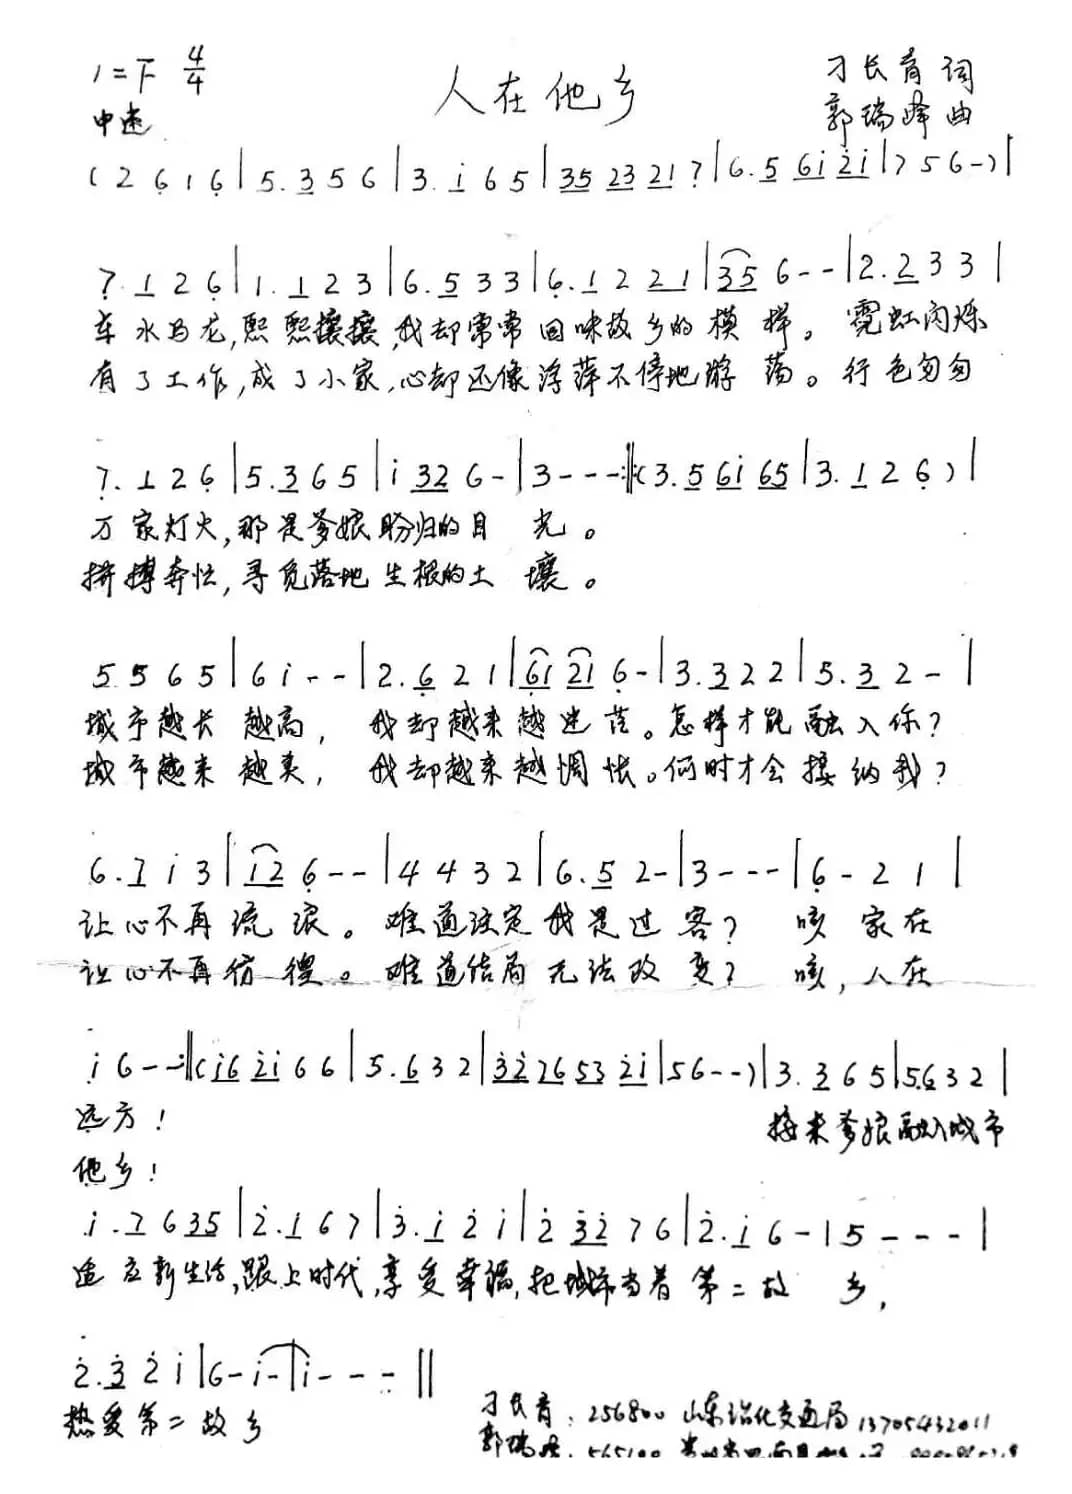 1=F 4/4
人在他乡
刁长育 词
中速
郭瑞峰 曲
(2 6 1 6|5.3 5 6|3.i 6 5|35 23 21 7|6.5 6i 2i|7 5 6-)|
7.1 2 6|1.1 2 3|6.5 3 3|6.1 2 21|35 6--|2.2 3 3|
车水马龙,熙熙攘攘,我却常常回味故乡的模样。霓虹闪烁
有了工作,成了小家,心却还像浮萍不停地游荡。行色匆匆
7.1 2 6|5.3 6 5|i 32 6-|3---:‖(3.5 6i 65|3.1 2 6)|
万家灯火,那是爹娘盼归的目光。
拼搏奔忙,寻觅落地生根的土壤。
5 5 6 5|6 i--|2.6 2 1|61 21 6-|3.3 2 2|5.3 2-|
城市越长越高,我却越来越迷茫。怎样才能融入你?
城市越来越美,我却越来越惆怅。何时才会接纳我?
6.7 i 3|12 6--|4 4 3 2|6.5 2-|3---|6-2 1|
让心不再流浪。难道注定我是过客?咳 家在
让心不再彷徨。难道结局无法改变?咳,人在
i 6--:‖(i6 2i 6 6|5.6 3 2|32 76 53 2i|5 6--)|3.3 6 5|5.6 3 2|
远方!
接来爹娘融入城市
他乡!
i.7 6 35|2.i 6 7|3.i 2 i|2 32 7 6|2.i 6-|5---|
适应新生活,跟上时代,享受幸福,把城市当着第二故乡,
2.3 2 i|6-i-|i---‖
热爱第二故乡
刁长育:256800 山东沾化交通局 13705432011
郭瑞峰:565100